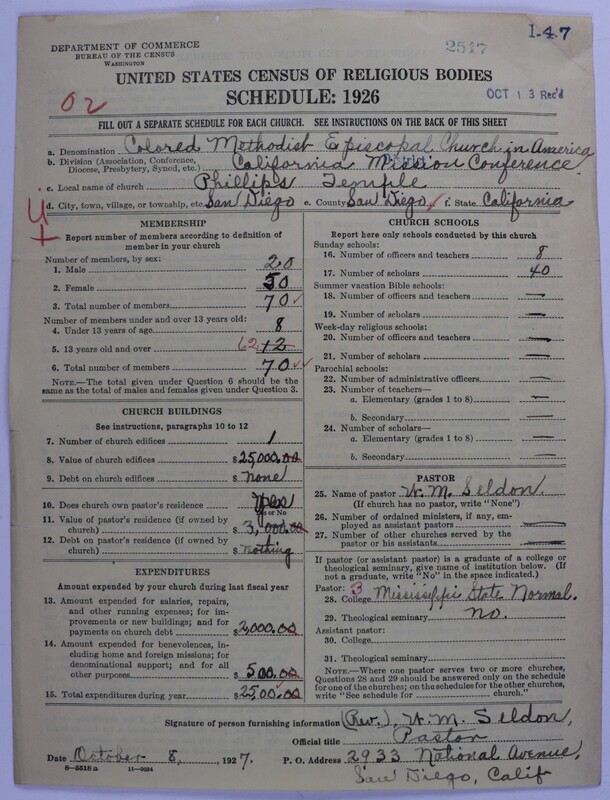 1-47
2517
DEPARTMENT OF COMMERCE
BUREAU OF THE CENSUS
WASHINGTON
UNITED STATES CENSUS OF RELIGIOUS BODIES
SCHEDULE: 1926
OCT 13 Rec'd
02
FILL OUT A SEPARATE SCHEDULE FOR EACH CHURCH. SEE INSTRUCTIONS ON THE BACK OF THIS SHEET
a. Denomination Colored Methodist Episcopal Church in America
b. Division (Association, Conference, Diocese, Presbytery, Synod, etc.) California Mission Conference
District
c. Local name of church Phillips Temple
d. City, town, village, or township, etc. San Diego e. County San Diego f. State California
MEMBERSHIP
Report number of members according to definition of
member in your church
Number of members, by sex:
1. Male 20
2. Female 50
3. Total number of members 70
Number of members under and over 13 years old:
4. Under 13 years of age 8
5. 13 years old and over 62 12
6. Total number of members 70
NOTE.—The total given under Question 6 should be the
same as the total of males and females given under Question 3.
CHURCH BUILDINGS
See instructions, paragraphs 10 to 12
7. Number of church edifices 1
8. Value of church edifices $25,000.00
9. Debt on church edifices $ none
10. Does church own pastor's residence yes
Yes or No
11. Value of pastor's residence (if owned by
church) $3,000.00
12. Debt on pastor's residence (if owned by
church) $ nothing
EXPENDITURES
Amount expended by your church during last fiscal year
13. Amount expended for salaries, repairs,
and other running expenses; for im-
provements or new buildings; and for
payments on church debt $2,000.00
14. Amount expended for benevolences, in-
cluding home and foreign missions; for
denominational support; and for all
other purposes $500.00
15. Total expenditures during year $2500.00
CHURCH SCHOOLS
Report here only schools conducted by this church
Sunday schools:
16. Number of officers and teachers 8
17. Number of scholars 40
Summer vacation Bible schools:
18. Number of officers and teachers —
19. Number of scholars —
Week-day religious schools:
20. Number of officers and teachers —
21. Number of scholars —
Parochial schools:
22. Number of administrative officers —
23. Number of teachers—
a. Elementary (grades 1 to 8) —
b. Secondary —
24. Number of scholars—
a. Elementary (grades 1 to 8) —
b. Secondary —
PASTOR
25. Name of pastor W. M. Seldon.
(If church has no pastor, write "None")
26. Number of ordained ministers, if any, em-
ployed as assistant pastors —
27. Number of other churches served by the
pastor or his assistants —
If pastor (or assistant pastor) is a graduate of a college or
theological seminary, give name of institution below. (If
not a graduate, write "No" in the space indicated.)
Pastor: 3
28. College Mississippi State Normal.
29. Theological seminary no.
Assistant pastor:
30. College
31. Theological seminary
NOTE.—Where one pastor serves two or more churches,
Questions 28 and 29 should be answered only on the schedule
for one of the churches; on the schedules for the other churches,
write "See schedule for ________ church."
Signature of person furnishing information (Rev.) W. M. Seldon,
Official title Pastor
Date October 8, 1927. P. O. Address 2933 National Avenue,
San Diego, Calif
8-5518a 11-9024